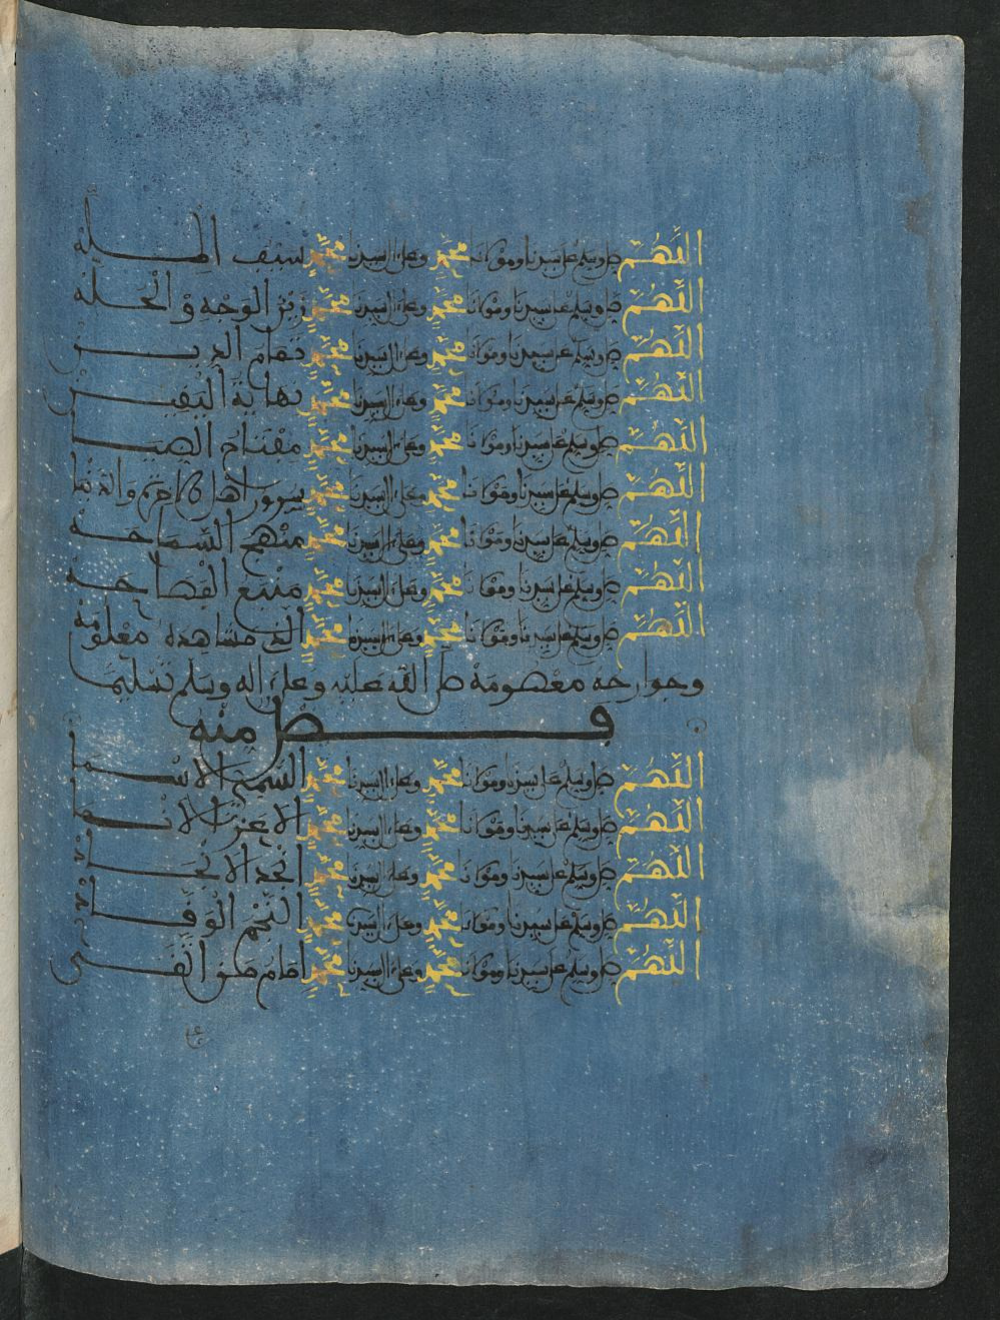 اللهم صل وسلم على سيدنا ومولانا محمد وعلى ال سيدنا محمد سيف الملة
اللهم صل وسلم على سيدنا ومولانا محمد وعلى ال سيدنا محمد زين الوجه والحلة
اللهم صل وسلم على سيدنا ومولانا محمد وعلى ال سيدنا محمد تمام الدين
اللهم صل وسلم على سيدنا ومولانا محمد وعلى ال سيدنا محمد نهاية اليفين
اللهم صل وسلم على سيدنا ومولانا محمد وعلى ال سيدنا محمد مفتاح
اللهم صل وسلم على سيدنا ومولانا محمد وعلى ال سيدنا محمد سرور اهل
اللهم صل وسلم على سيدنا ومولانا محمد وعلى ال سيدنا محمد منهج السماحة
اللهم صل وسلم على سيدنا ومولانا محمد وعلى ال سيدنا محمد منبع الفصاحة
اللهم صل وسلم على سيدنا ومولانا محمد وعلى ال سيدنا محمد الذي مشاهده معلومة
وجوارحه معصومة صلى الله عليه وعلى اله وسلم تسليما
فصل منه
اللهم صل وسلم على سيدنا ومولانا محمد وعلى ال سيدنا محمد السمي الاسما
اللهم صل وسلم على سيدنا ومولانا محمد وعلى ال سيدنا محمد الاعز
اللهم صل وسلم على سيدنا ومولانا محمد وعلى ال سيدنا محمد
اللهم صل وسلم على سيدنا ومولانا محمد وعلى ال سيدنا محمد النجم
اللهم صل وسلم على سيدنا ومولانا محمد وعلى ال سيدنا محمد امام